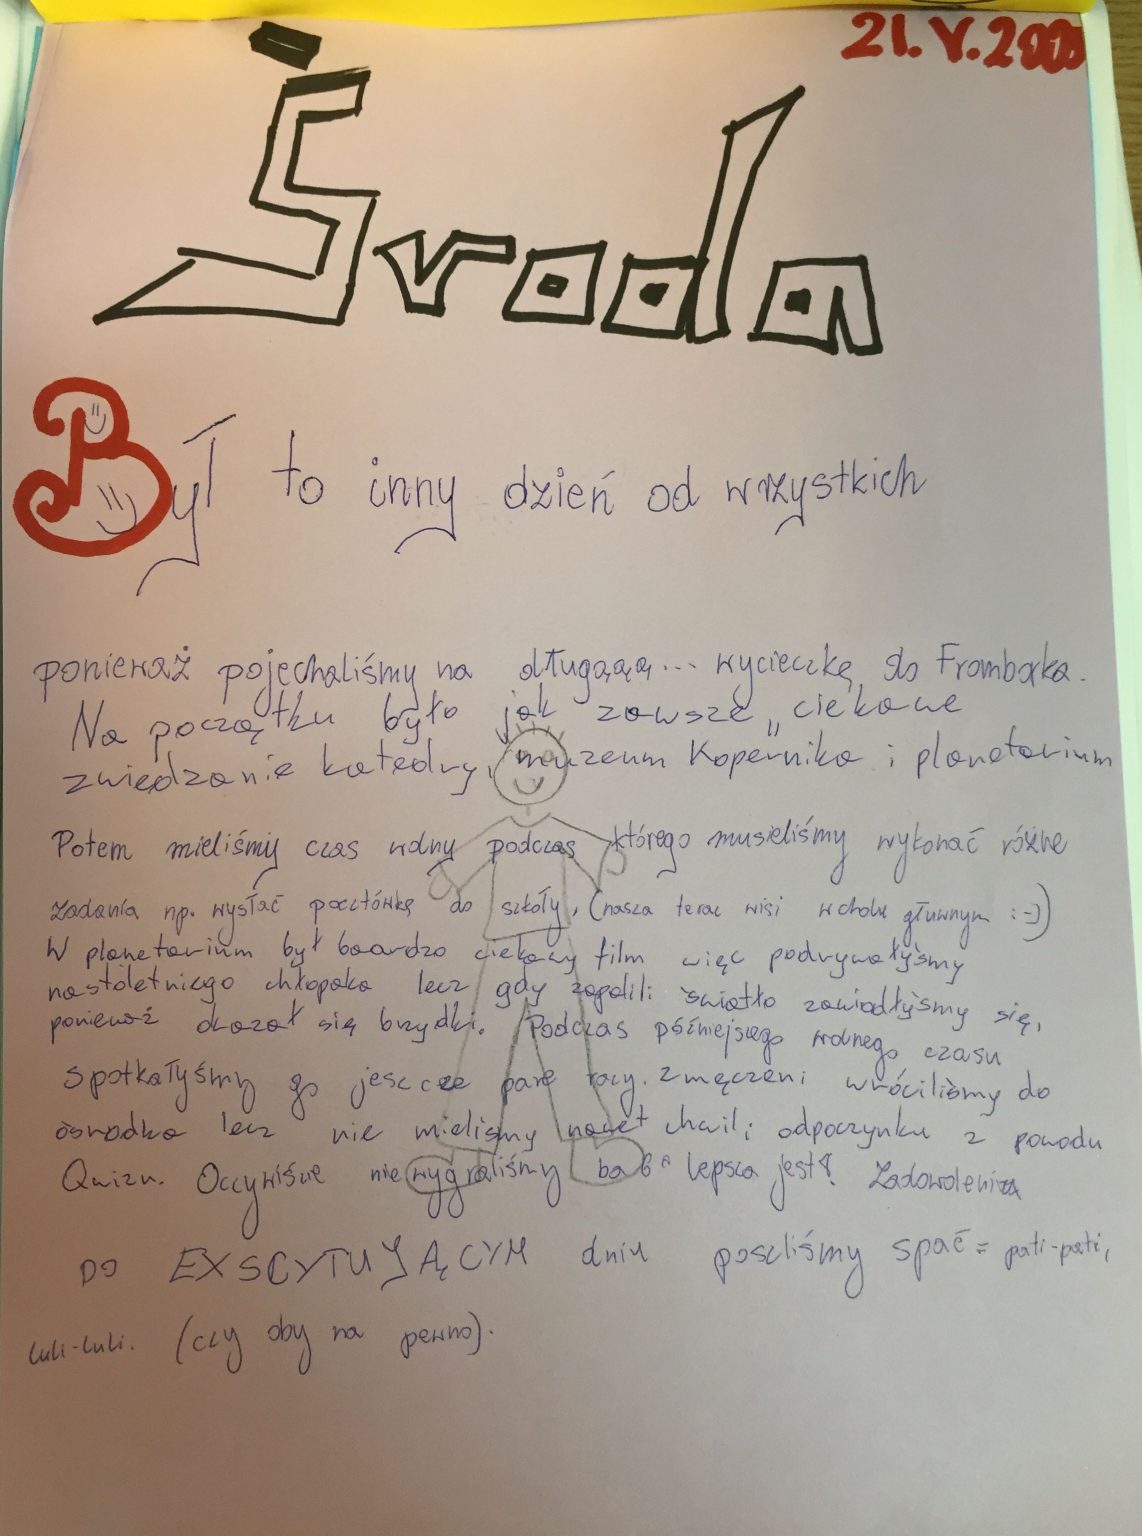 21.V.2000
Środa
Był to inny dzień od wrzystkich
ponieważ pojechaliśmy na długąąą... wycieczkę do Fromborka.
Na początku było jak zawsze „ciekawe"
zwiedzanie katedry, muzeum Kopernika i planetarium
Potem mieliśmy czas wolny podczas którego musieliśmy wykonać różne
zadania np. wysłać pocztówkę do szkoły, (nasza teraz wisi w cholu głuwnym :-))
W planetarium był baardzo ciekawy film więc podrywałyśmy
nastoletniego chłopaka lecz gdy zapalili światło zawiodłyśmy się,
ponieważ okazał się brzydki. Podczas późniejszego wolnego czasu
spotkałyśmy go jeszcze parę razy. Zmęczeni wróciliśmy do
ośrodka lecz nie mieliśmy nawet chwili odpoczynku z powodu
Quizu. Oczywiście nie wygraliśmy bo 6a lepsza jest! Zadowoleni
po EXSCYTUJĄCYM dniu poszliśmy spać = pati-pati,
luli-luli. (czy oby na pewno).